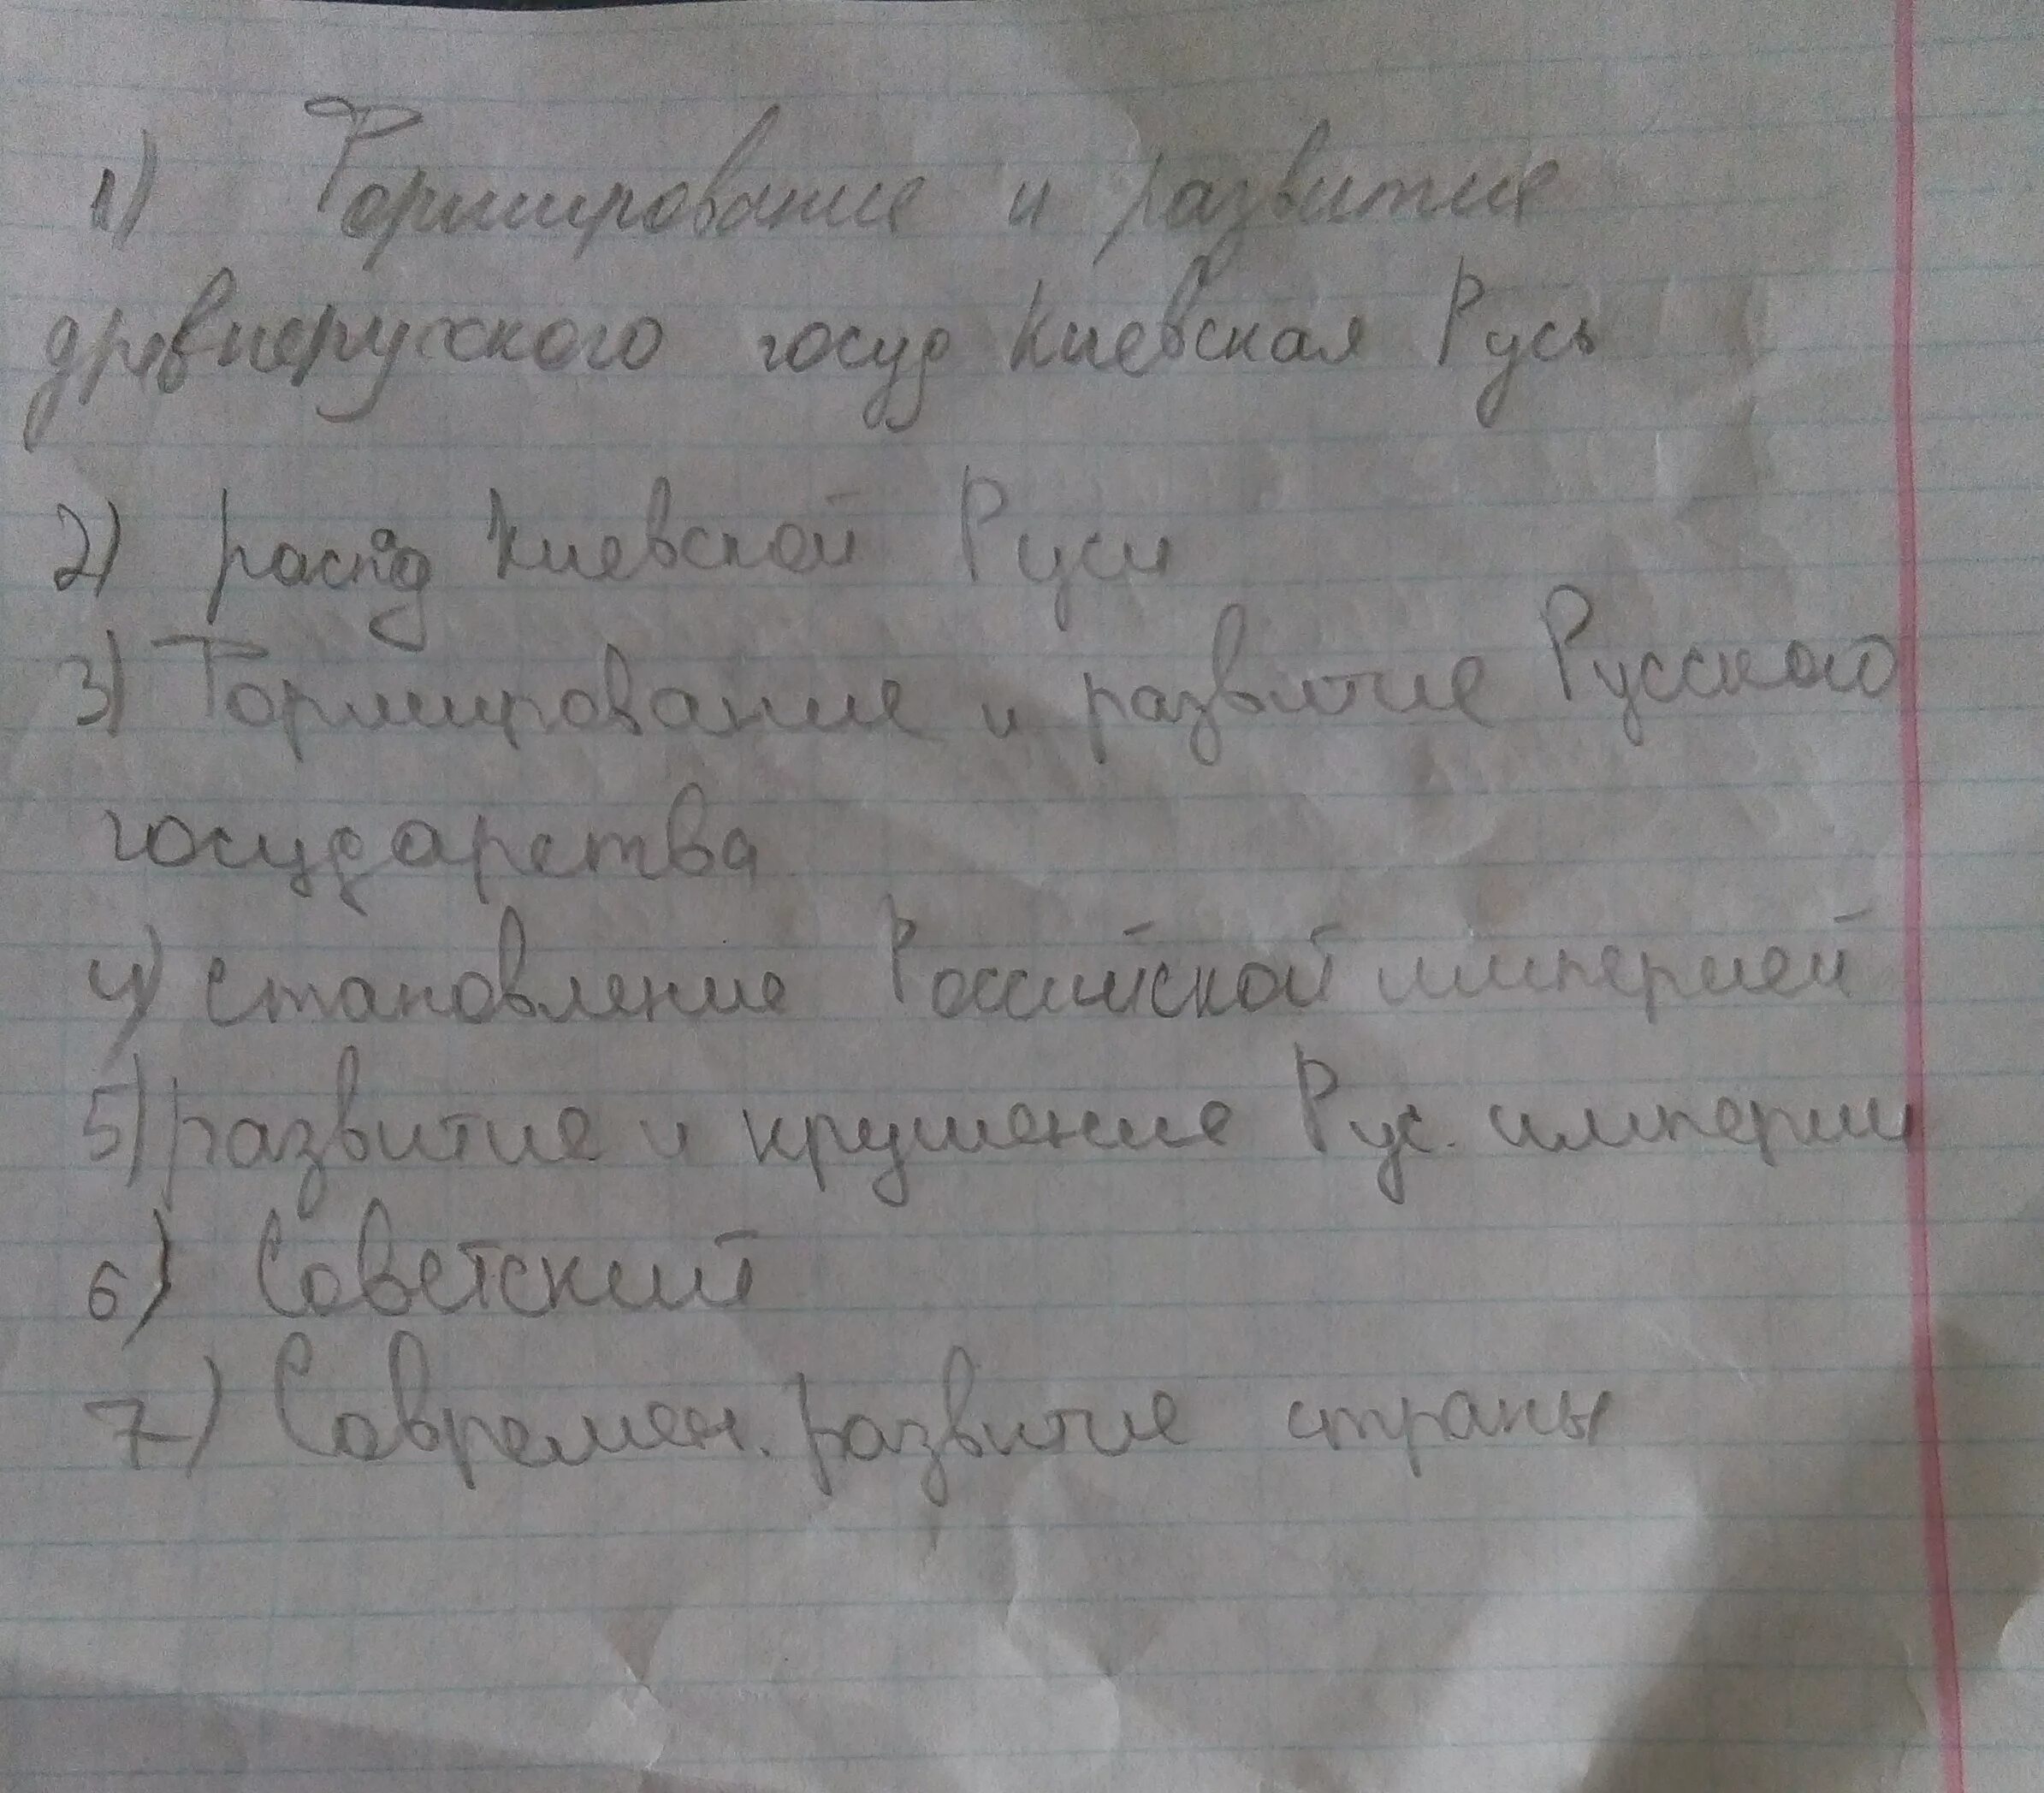 1) Формирование и развитие
древнерусского госуд Киевская Русь
2) распад Киевской Руси
3) Формирование и развитие Русского
государства
4) становление Российской империей
5) развитие и крушение Рус. империи
6) Советский
7) Времен. развитие страны